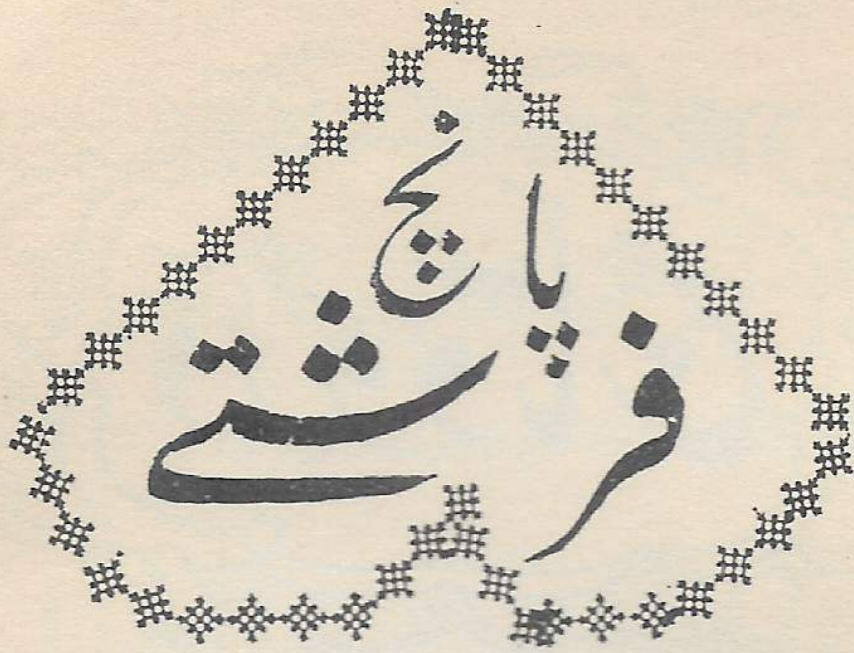 پانچ
فرشتے